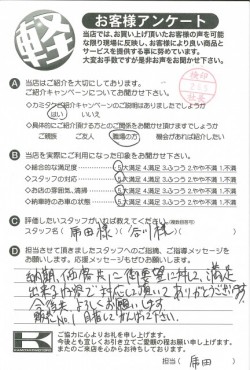 軽
お客様アンケート
当店では、お買い上げ頂いたお客様の声を可能
な限り現場に反映し、お客様により良い商品と
サービスを提供する事に努めています。
大変お手数ですが是非お声をお聞かせ下さい。
検印
A 当店はご紹介を大切にしております。
ご紹介キャンペーンについてお聞かせ下さい。
◇カミタケご紹介キャンペーンのご説明はありましたでしょうか
はい いいえ
◇具体的にご紹介頂ける方とのご関係をお聞かせ頂けますでしょうか
ご親族 ご友人 職場の方 機会があれば紹介したい
B 当店を実際にご利用になった印象をお聞かせ下さい。
◇総合的な満足度 5大満足 4.満足 3.ふつう 2.やや不満 1.不満
◇スタッフの対応 5大満足 4.満足 3.ふつう 2.やや不満 1.不満
◇お店の雰囲気、清掃 5大満足 4.満足 3.ふつう 2.やや不満 1.不満
◇納車時のお車の状態 5大満足 4.満足 3.ふつう 2.やや不満 1.不満
C 評価したいスタッフがいれば教えてください。(複数回答可)
スタッフ名( 席田様 )( 谷川様 )
D 担当させて頂きましたスタッフへのご指摘、ご指導メッセージを
お願いします。応援メッセージもぜひお願いします。
納期、価格共に御要望に対し、満足
出来る内容で対応して頂いてありがとうございます
今後共、よろしくお願いします
販売No1目指してがんばって下さい。
ご協力に心よりお礼を申し上げます。
今後とも宜しくお引き立てご愛顧の程お願い申し上げます。
またのご来店を心からお待ちしております。
担当( 席田 )